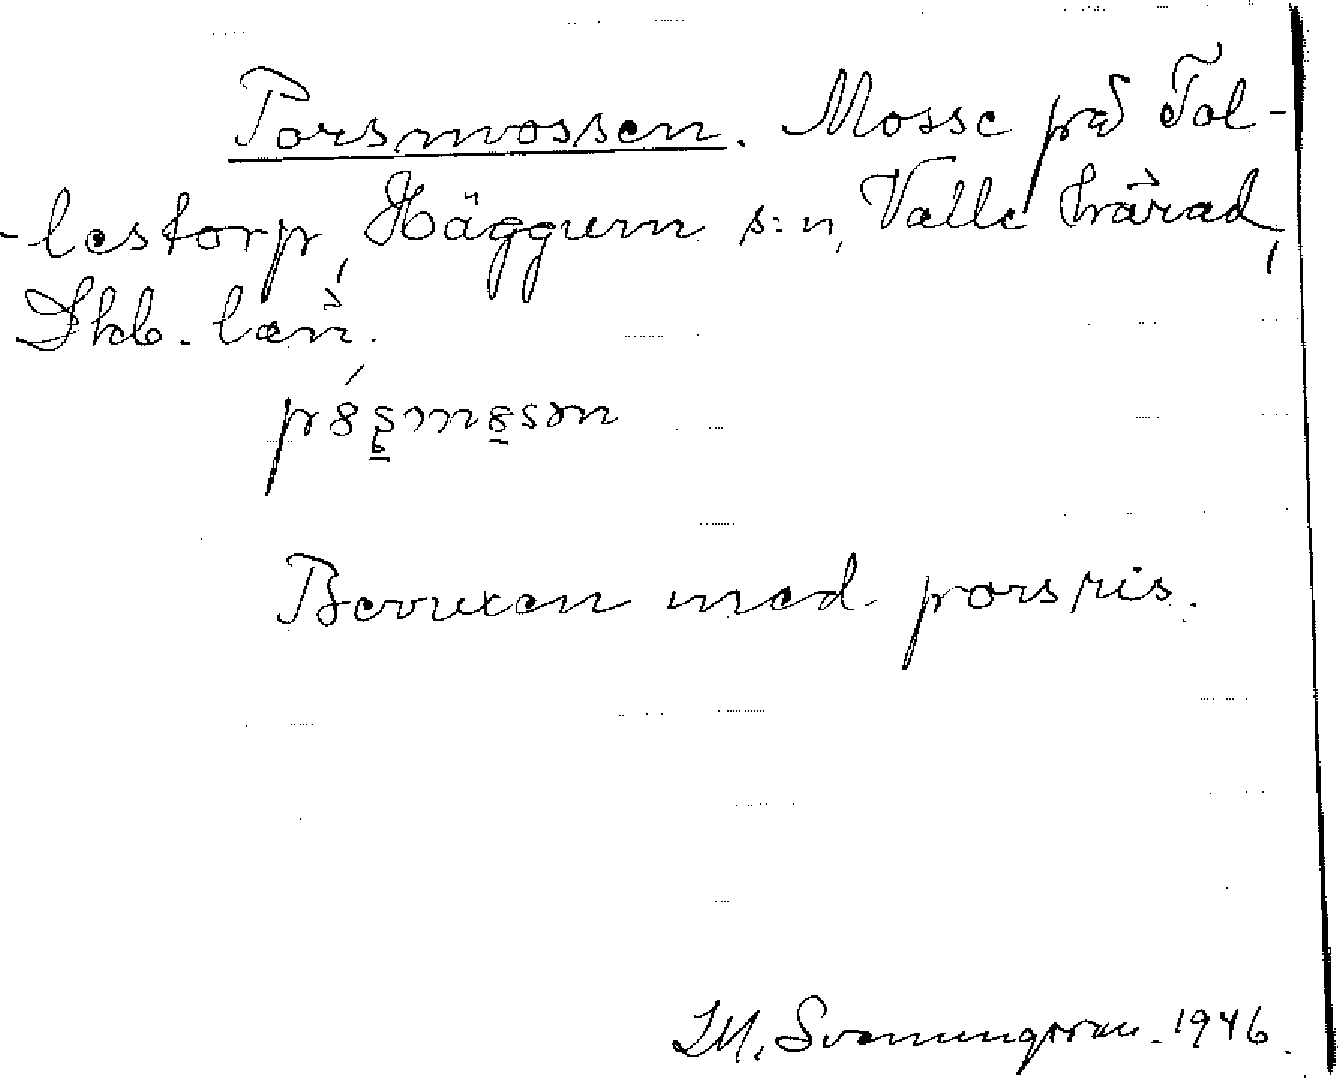 Porsmossen. Mosse på Tol-
-lestorp, Häggum s:n, Valle härad,
Skb. län.
Bevuxen med porsris.
M. Svenningsson. 1946.